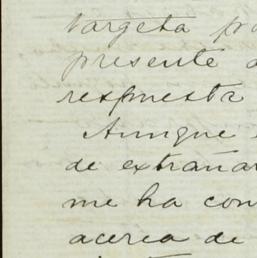 targeta
presente
respuesta
Aunque
de extrañar
me ha con
acerca de